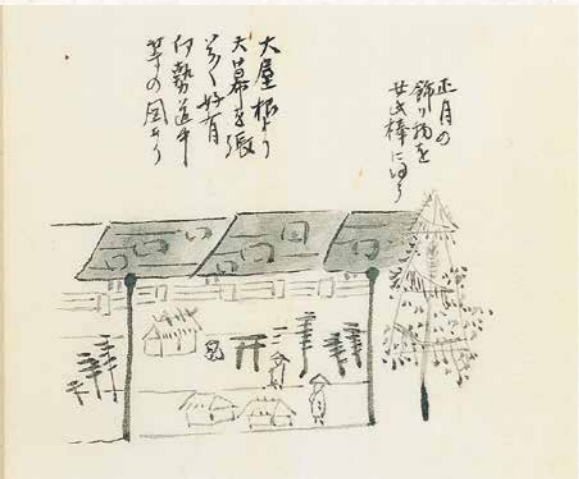 正月の
飾り物を
棒に
大屋根より
大幕を張
多く好有
伊勢道中
等の図あり